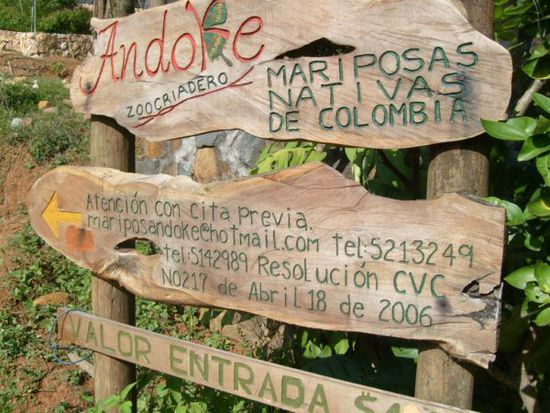 Andoke
ZOOCRIADERO
MARIPOSAS
NATIVAS
DE COLOMBIA
Atención con cita Previa.
mariposandoke@hotmail.com tel:5213249
tel:5142989 Resolución CVC
NO217 de Abril 18 de 2006
VALOR ENTRADA $